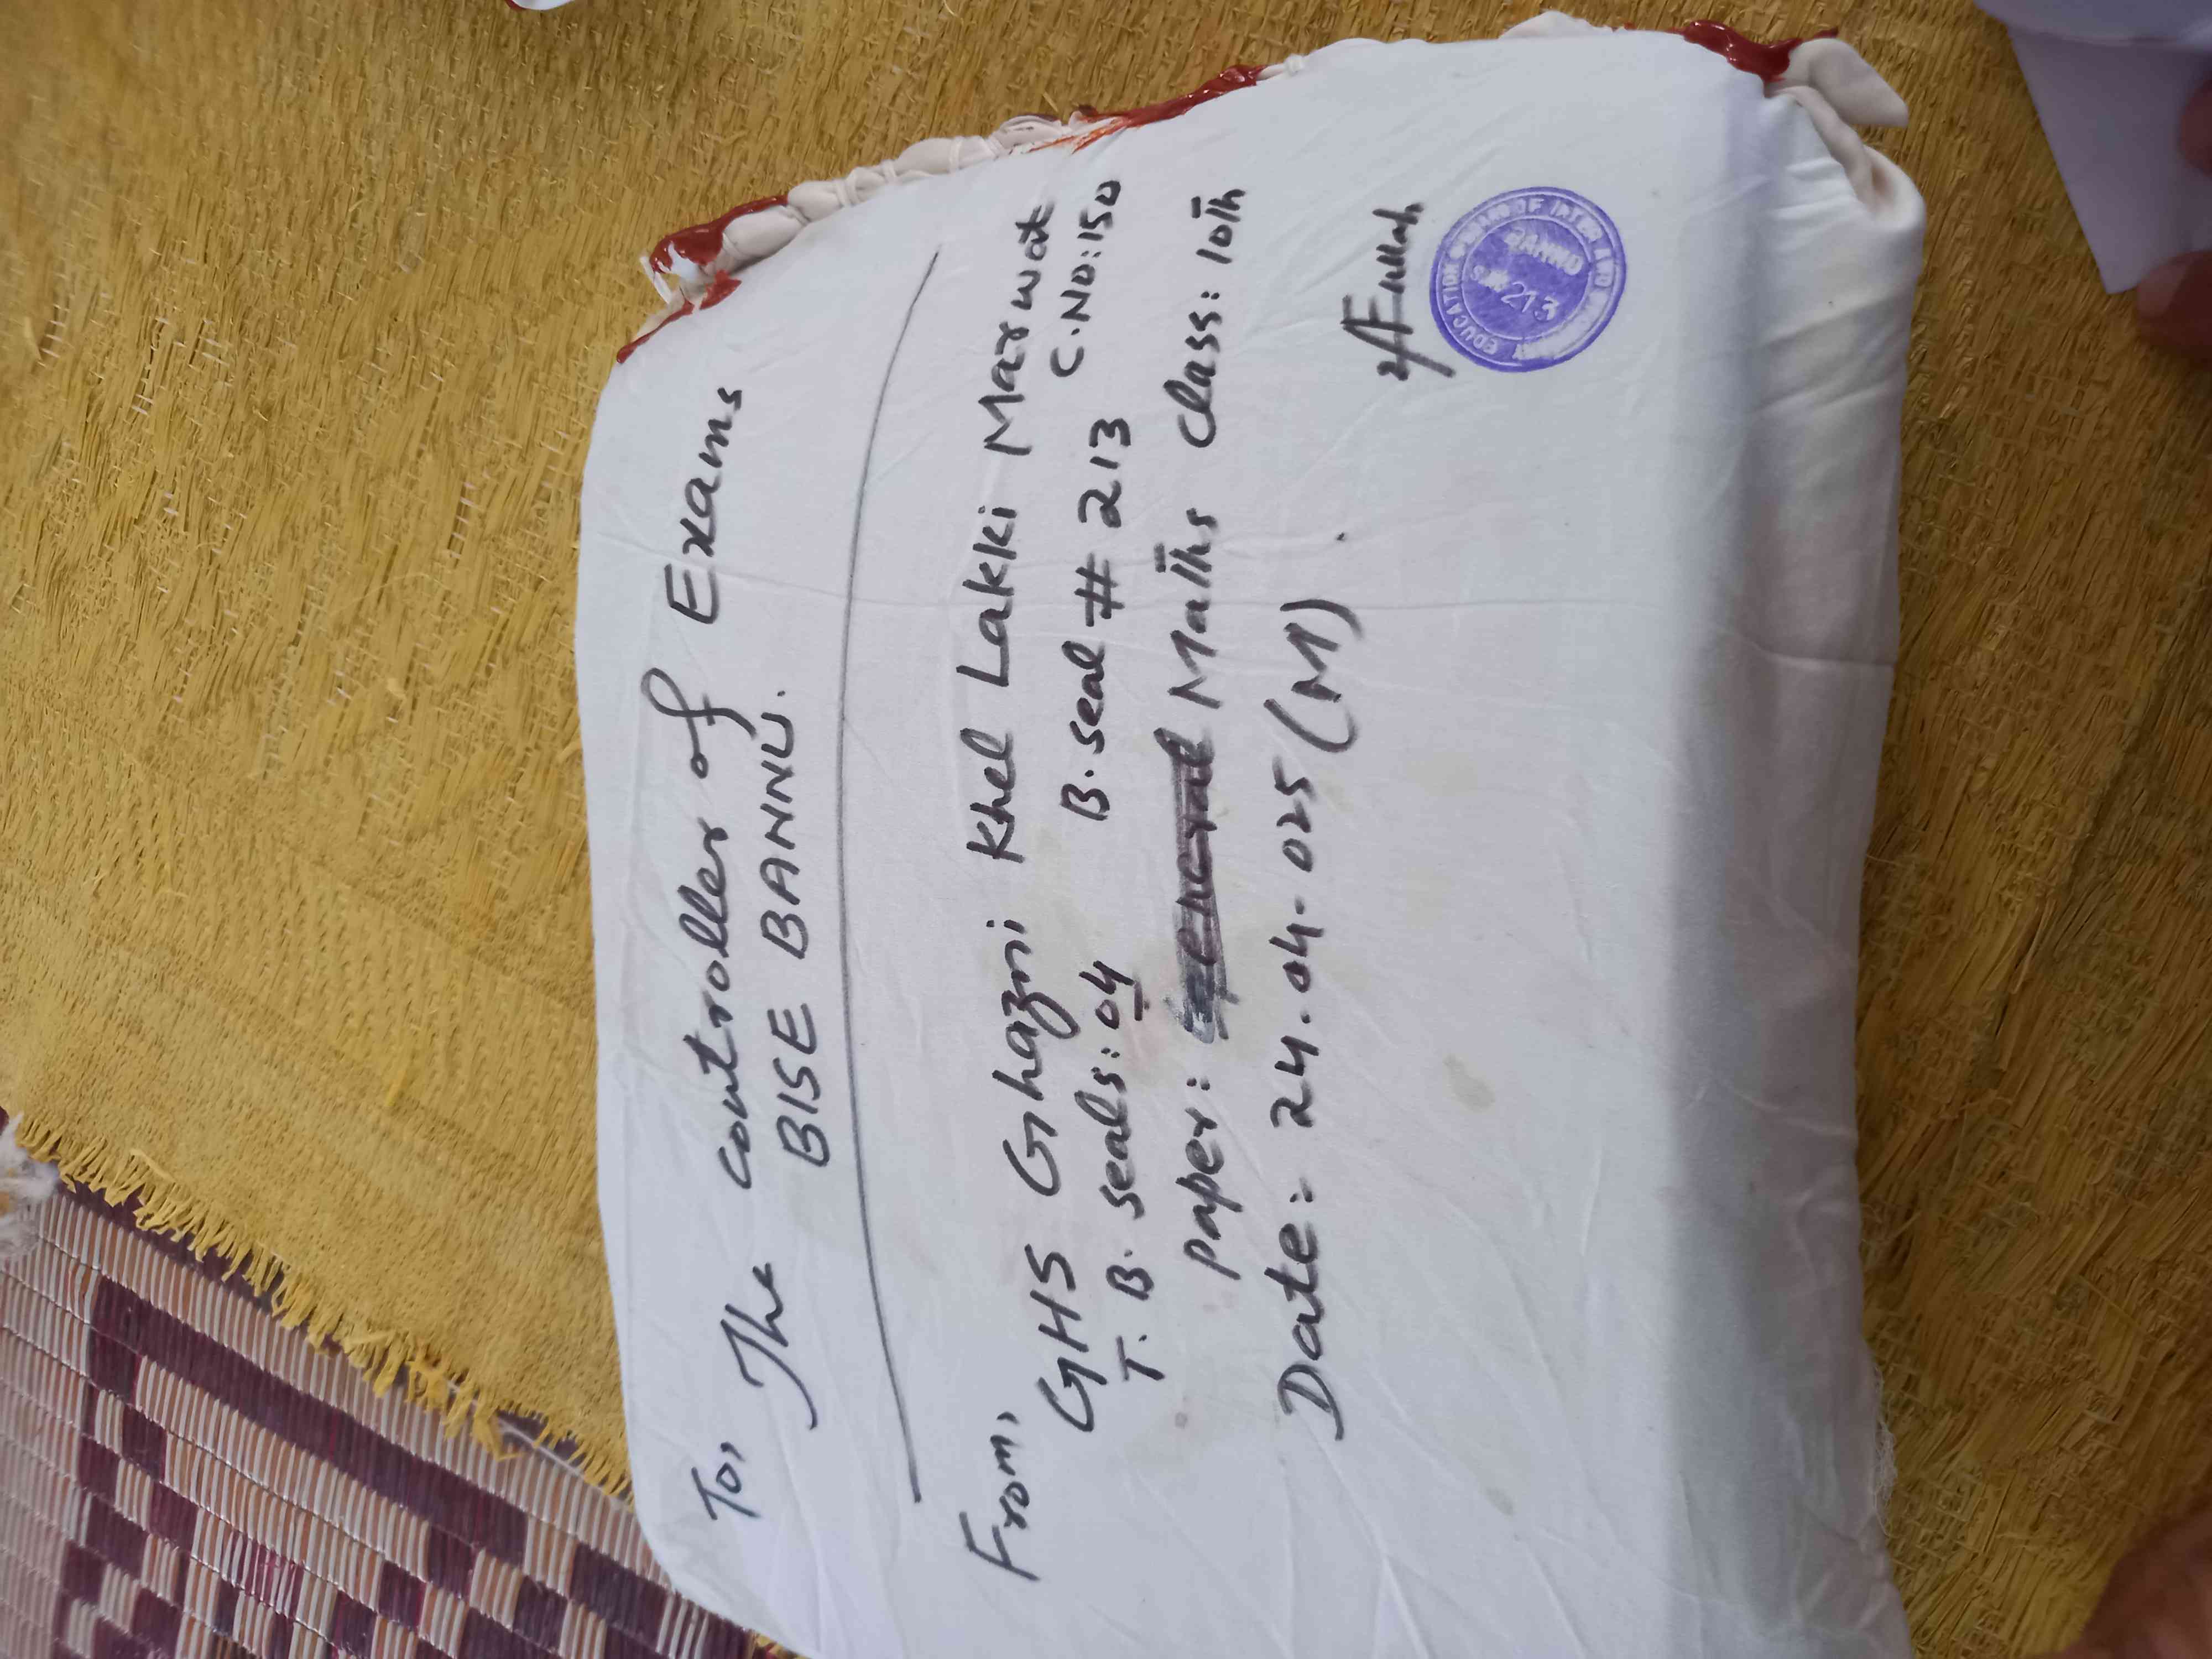 To,
The Controller of Exams
BISE BANNU.
From,
GHS Ghazni Khel Lakki Marwat
T. B. seals: 04 B. seal # 213 C.No: 150
Paper: Maths Class: 10th
Date: 24.04.025 (M).
EDUCATION BOARD OF INTER AND
BANNU
213